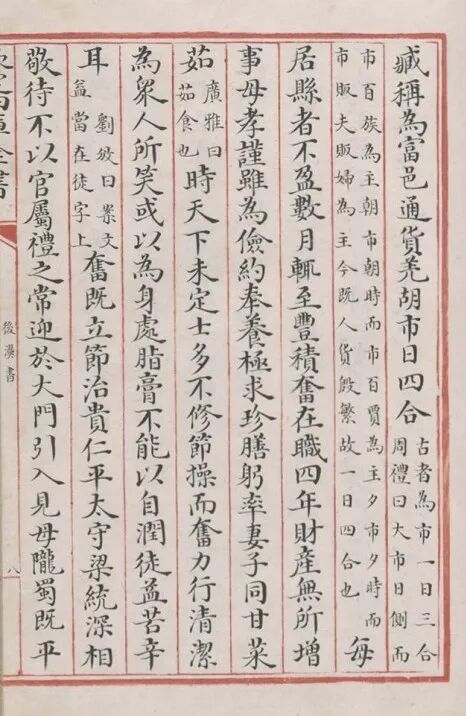 臧稱為富邑通貨羌胡市日四合
古者為市一日三合
周禮曰大市日側而
市百族為主朝市朝時而市百賈為主夕市夕時而
市販夫販婦為主今既人貨殷繁故一日四合也
每
居縣者不盈數月輒至豐積奮在職四年財產無所增
事母孝謹雖為儉約奉養極求珍膳躬率妻子同甘菜
茹
廣雅曰
茹食也
時天下未定士多不修節操而奮力行清潔
為衆人所笑或以為身處脂膏不能以自潤徒益苦辛
耳
劉攽曰案文
益當在徒字上
奮既立節治貴仁平太守梁統深相
敬待不以官屬禮之常迎於大門引入見母隴蜀既平
全書
後漢書
八